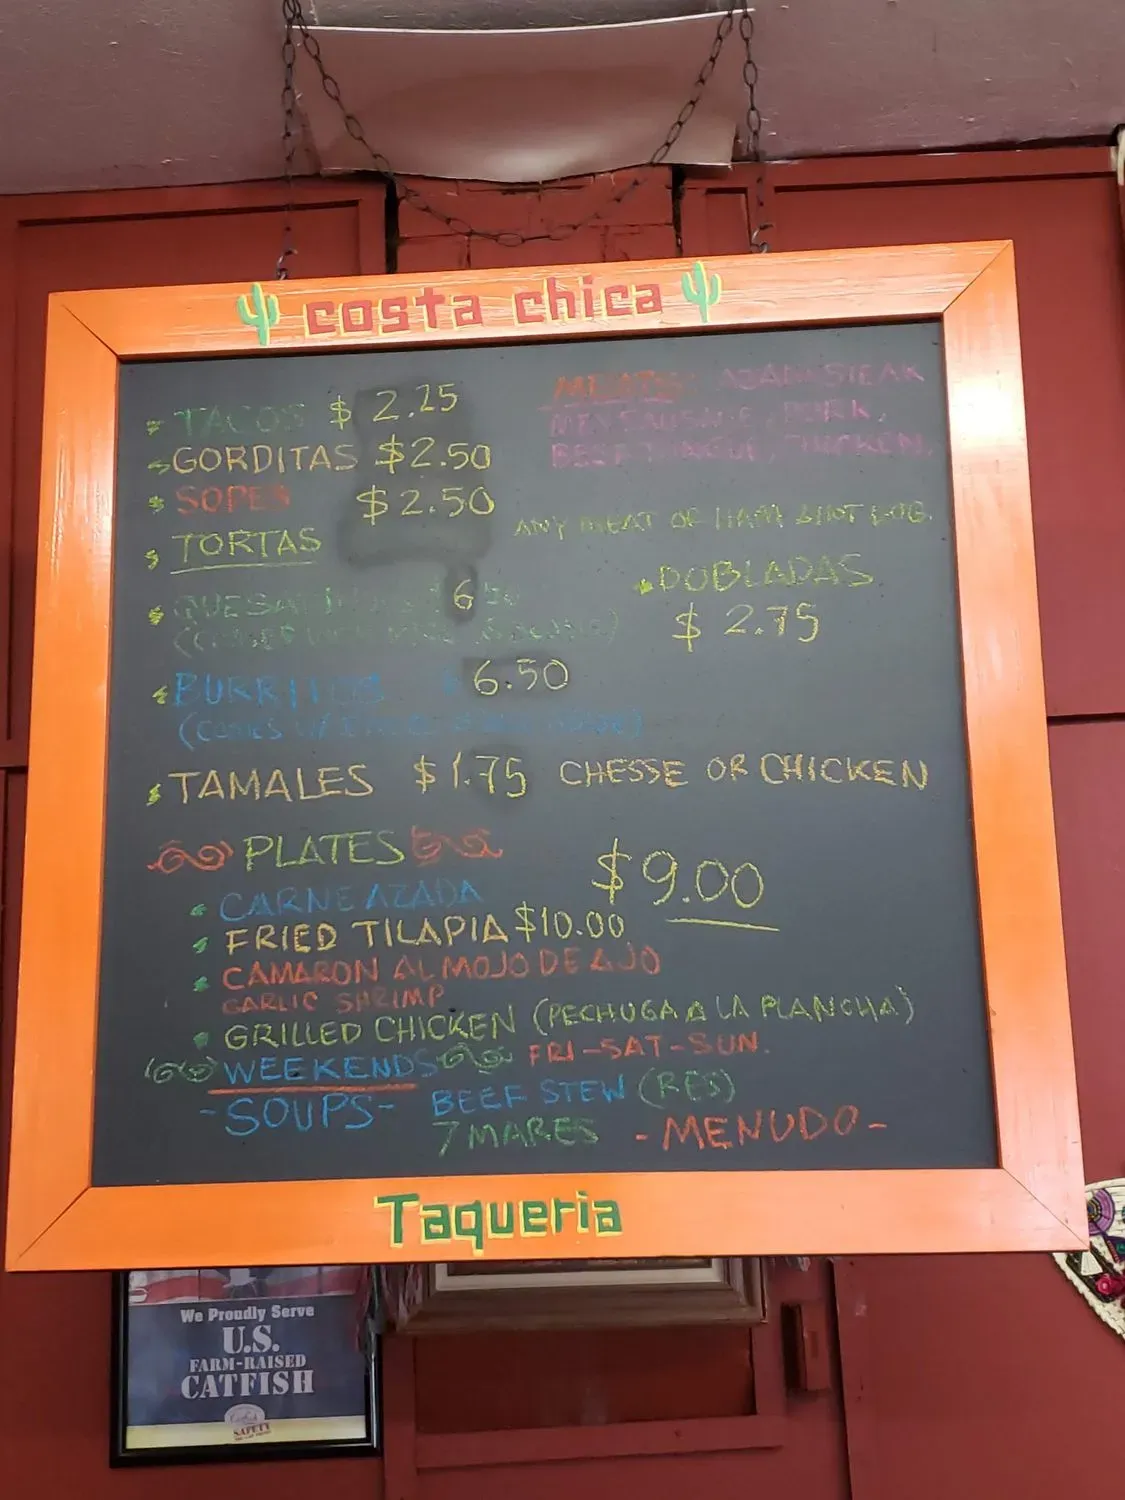 costa chica
TACOS $ 2.25
GORDITAS $2.50
SOPES $2.50
TORTAS
MEATS: STEAK
PORK,
BEEF TONGUE, CHICKEN.
ANY MEAT OR HAM &HOT DOG.
$ 6.50
DOBLADAS
$ 2.75
BURRITOS $ 6.50
TAMALES $1.75 CHESSE OR CHICKEN
PLATES
$9.00
CARNE AZADA
FRIED TILAPIA $10.00
CAMARON AL MOJO DE AJO
GARLIC SHRIMP
GRILLED CHICKEN (PECHUGA A LA PLANCHA)
WEEKENDS FRI-SAT-SUN.
-SOUPS- BEEF STEW (RES)
7 MARES -MENUDO-
Taqueria
We Proudly Serve
U.S.
FARM-RAISED
CATFISH